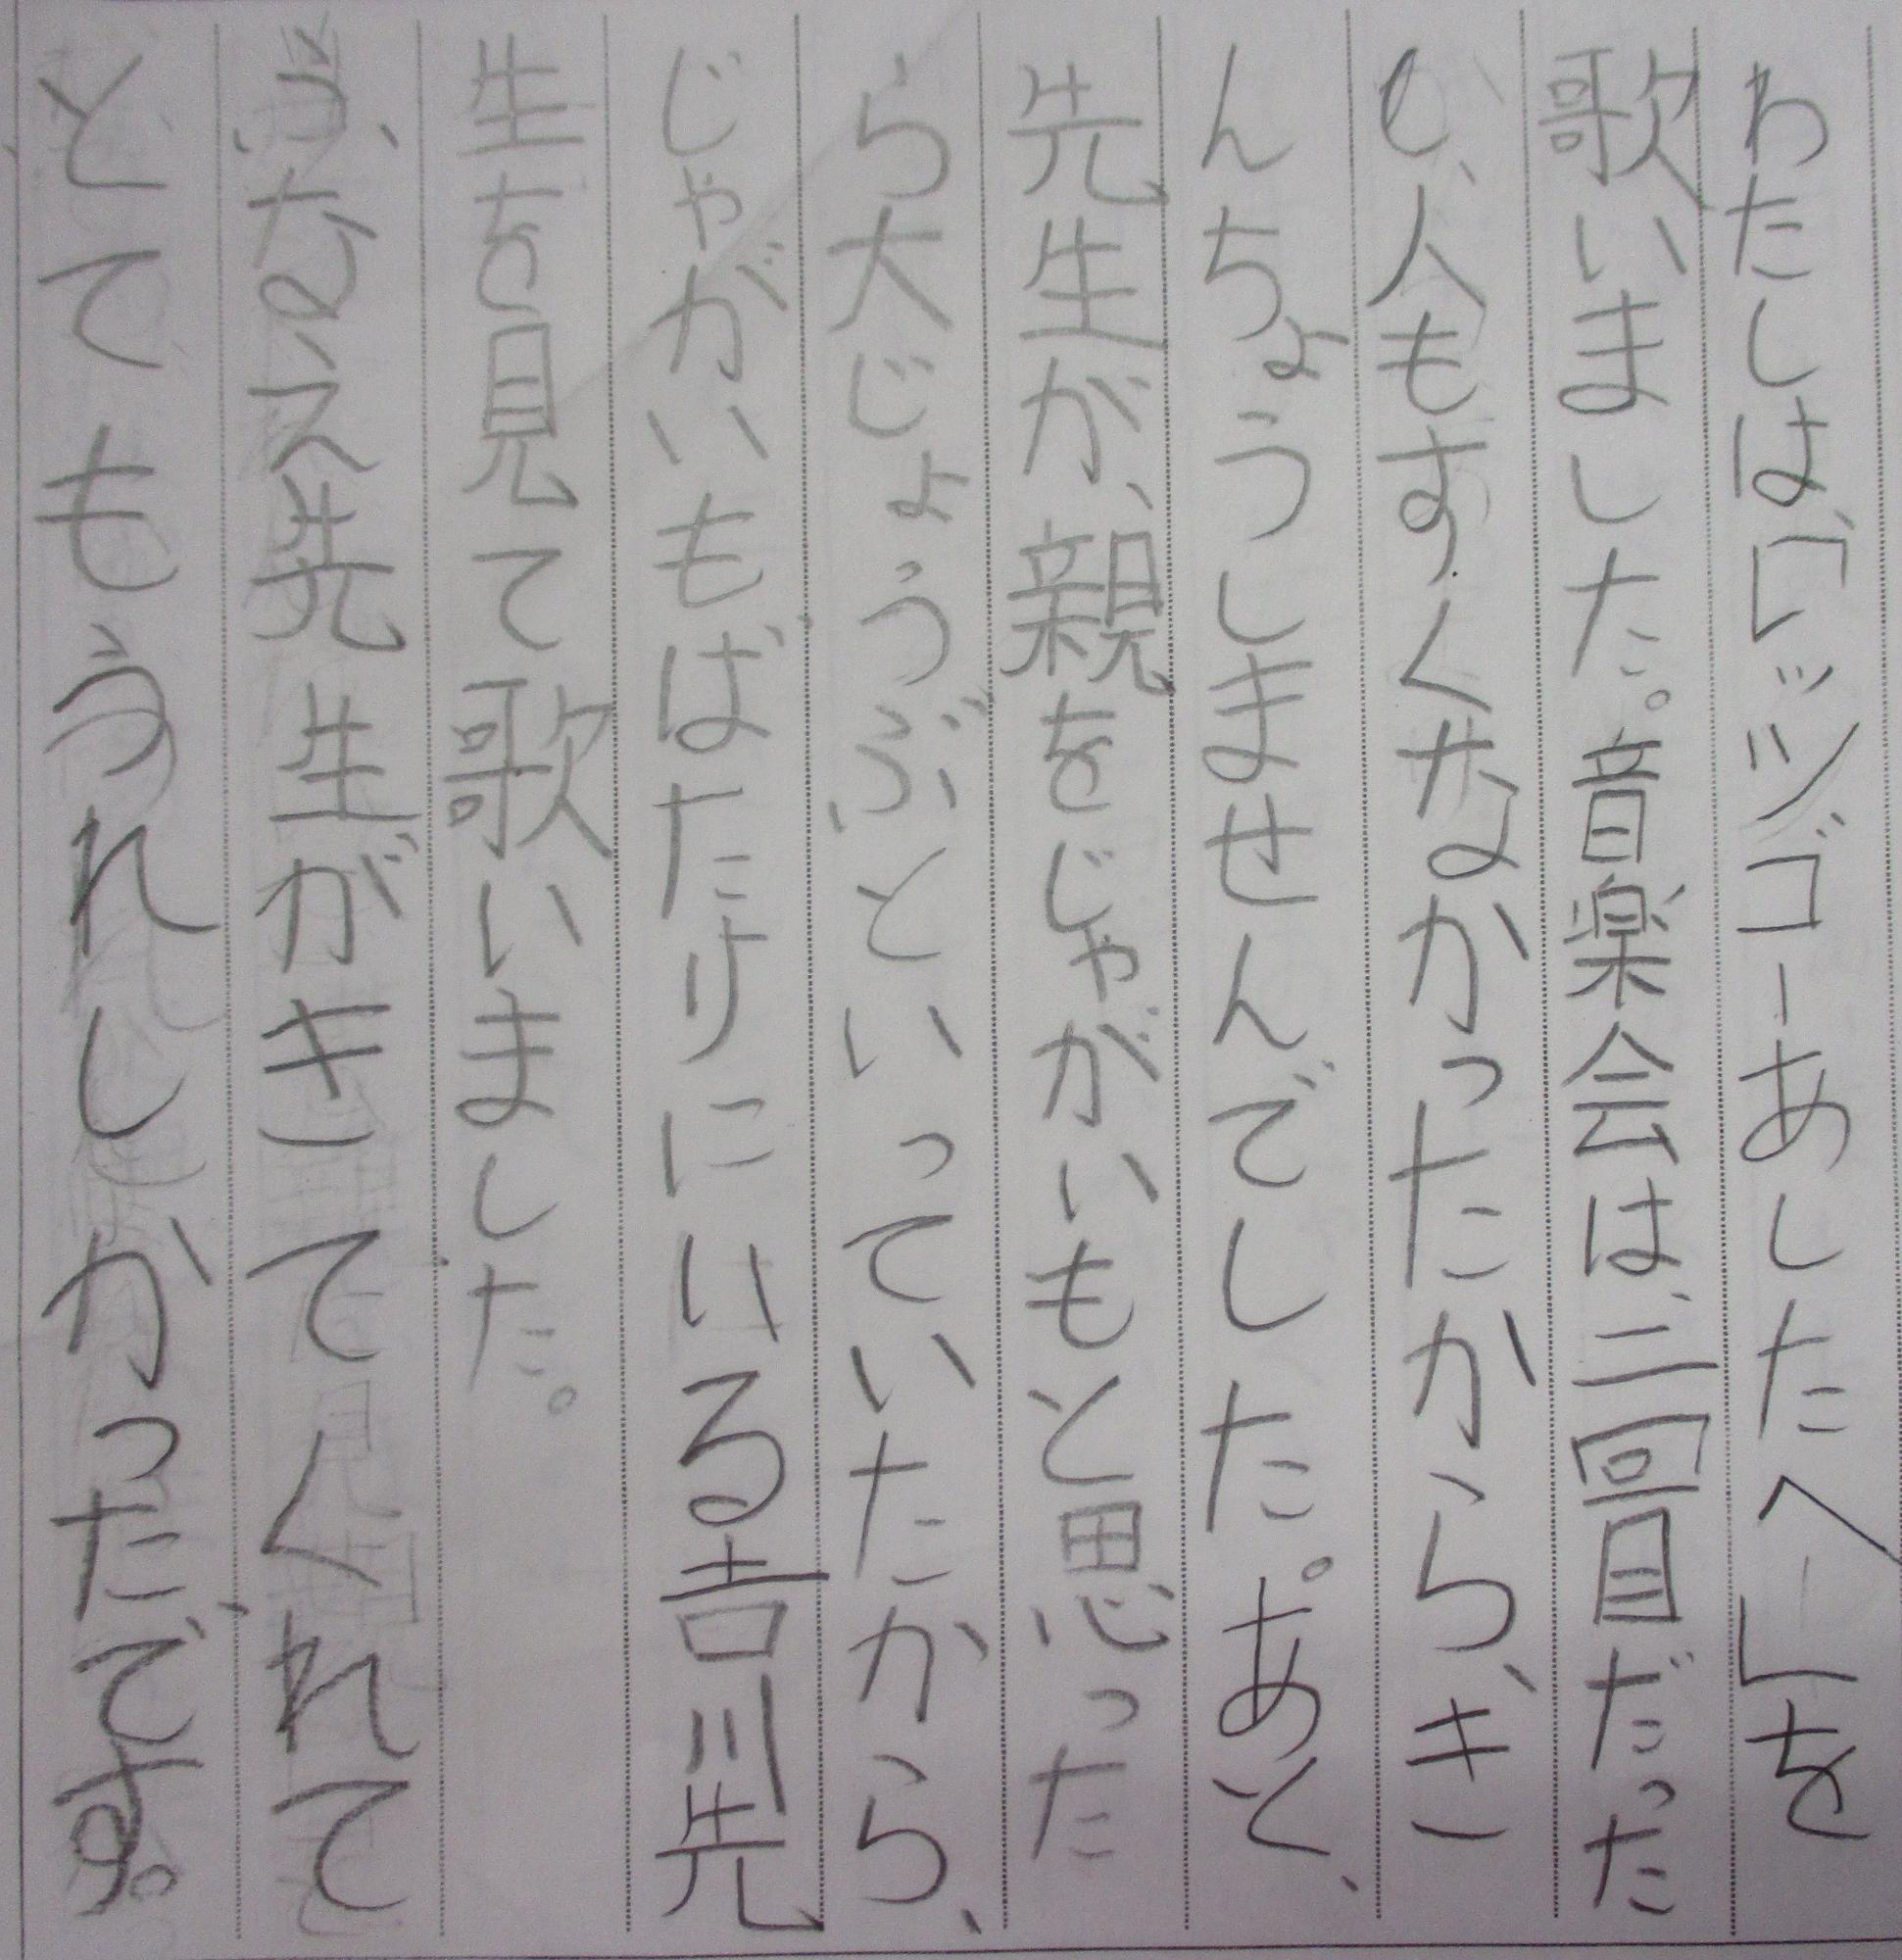 わたしは、「レッツゴーあしたへ」を
歌いました。音楽会は、二回目だった
し、人もすくなかったから、き
んちょうしませんでした。あと、
先生が、親をじゃがいもと思った
ら大じょうぶといっていたから、
じゃがいもばたりにいる吉川先
生を見て歌いました。
先生がきてくれて
とてもうれしかったです。